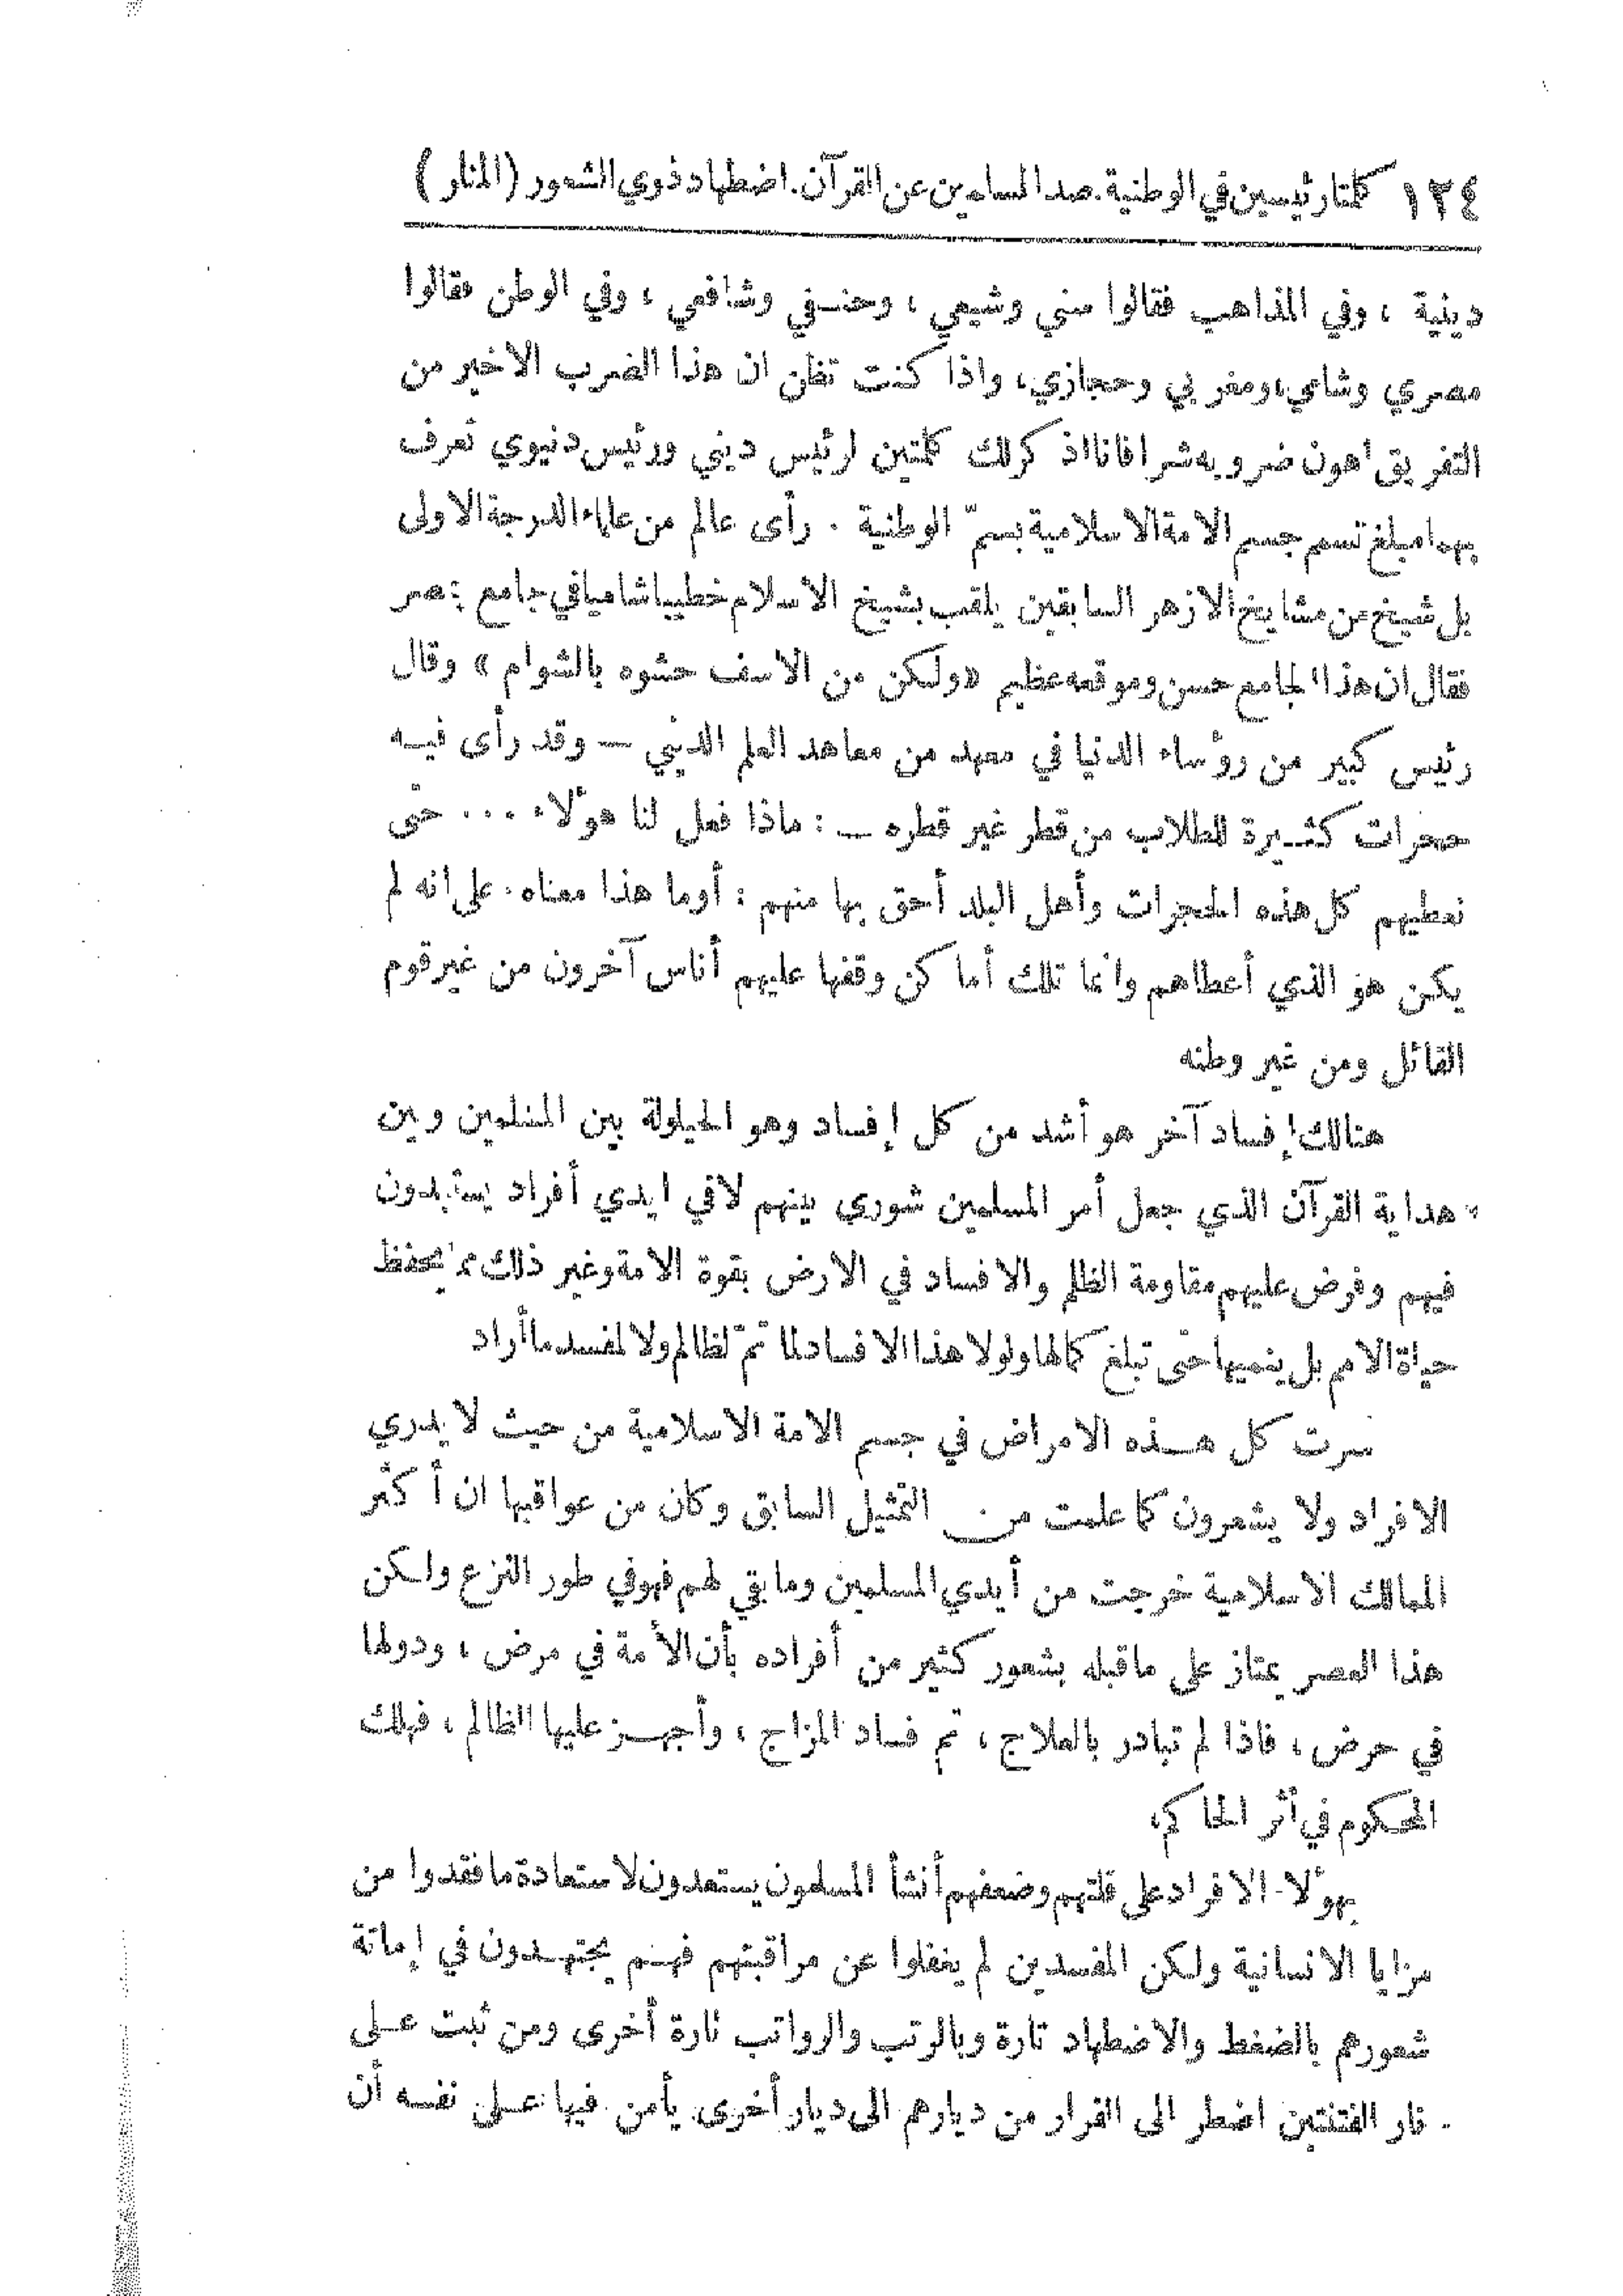 ١٣٤ كلمتا رئيسين في الوطنية. صد المسلمين عن القرآن. اضطهاد ذوي الشعور (المنار)
دينية ، وفي المذاهب فقالوا سني وشيعي ، وحنفي وشافعي ، وفي الوطن فقالوا
مصري وشامي، ومغربي وحجازي، واذا كنت تظن ان هذا الضرب الاخير من
التفريق أهون ضروبه شرا فانا اذكر لك كلمتين لرئيس ديني ورئيس دنيوي تعرف
بهما مبلغ تسمم جسم الامة الاسلامية بسمّ الوطنية . رأى عالم من علماء الدرجة الاولى
بل شيخ من مشايخ الازهر السابقين يلقب بشيخ الاسلام خطيبا شاميا في جامع بمصر
فقال ان هذا الجامع حسن وموقعه عظيم «ولكن من الاسف حشوه بالشوام » وقال
رئيس كبير من رؤساء الدنيا في معهد من معاهد العلم الديني — وقد رأى فيه
حجرات كثيرة للطلاب من قطر غير قطره — : ماذا فعل لنا هؤلاء ... حتى
نعطيهم كل هذه الحجرات وأهل البلد أحق بها منهم : أوما هذا معناه. على انه لم
يكن هو الذي أعطاهم وانما تلك أماكن وقفها عليهم أناس آخرون من غير قوم
القائل ومن غير وطنه
هنالك إفساد آخر هو أشد من كل إفساد وهو الحيلولة بين المسلمين وبين
هداية القرآن الذي جعل أمر المسلمين شورى بينهم لا في ايدي أفراد يستبدون
فيهم وفرض عليهم مقاومة الظلم والافساد في الارض بقوة الامة وغير ذلك مما يحفظ
حياة الامم بل ينميها حتى تبلغ كمالها ولولا هذا الافساد لما تمّ لظالم ولا لمفسد ما أراد
سرت كل هذه الامراض في جسم الامة الاسلامية من حيث لا يدري
الافراد ولا يشعرون كما علمت من التمثيل السابق وكان من عواقبها ان أكثر
الممالك الاسلامية خرجت من أيدي المسلمين وما بقي لهم فهو في طور النزع ولكن
هذا العصر يمتاز على ما قبله بشعور كثير من أفراده بأن الأمة في مرض ، ودولها
في حرض ، فاذا لم تبادر بالعلاج ، تم فساد المزاج ، وأجهز عليها الظالم ، فهلك
المحكوم في أثر الحاكم،
بهؤلاء الافراد على قلتهم وضعفهم أنشأ المسلمون يستعدون لاستعادة ما فقدوا من
مزايا الانسانية ولكن المفسدين لم يغفلوا عن مراقبتهم فهم يجتهدون في إماتة
شعورهم بالضغط والاضطهاد تارة وبالرتب والرواتب تارة أخرى ومن ثبت على
نار الفتنتين اضطر الى الفرار من ديارهم الى ديار أخرى يأمن فيها على نفسه أن